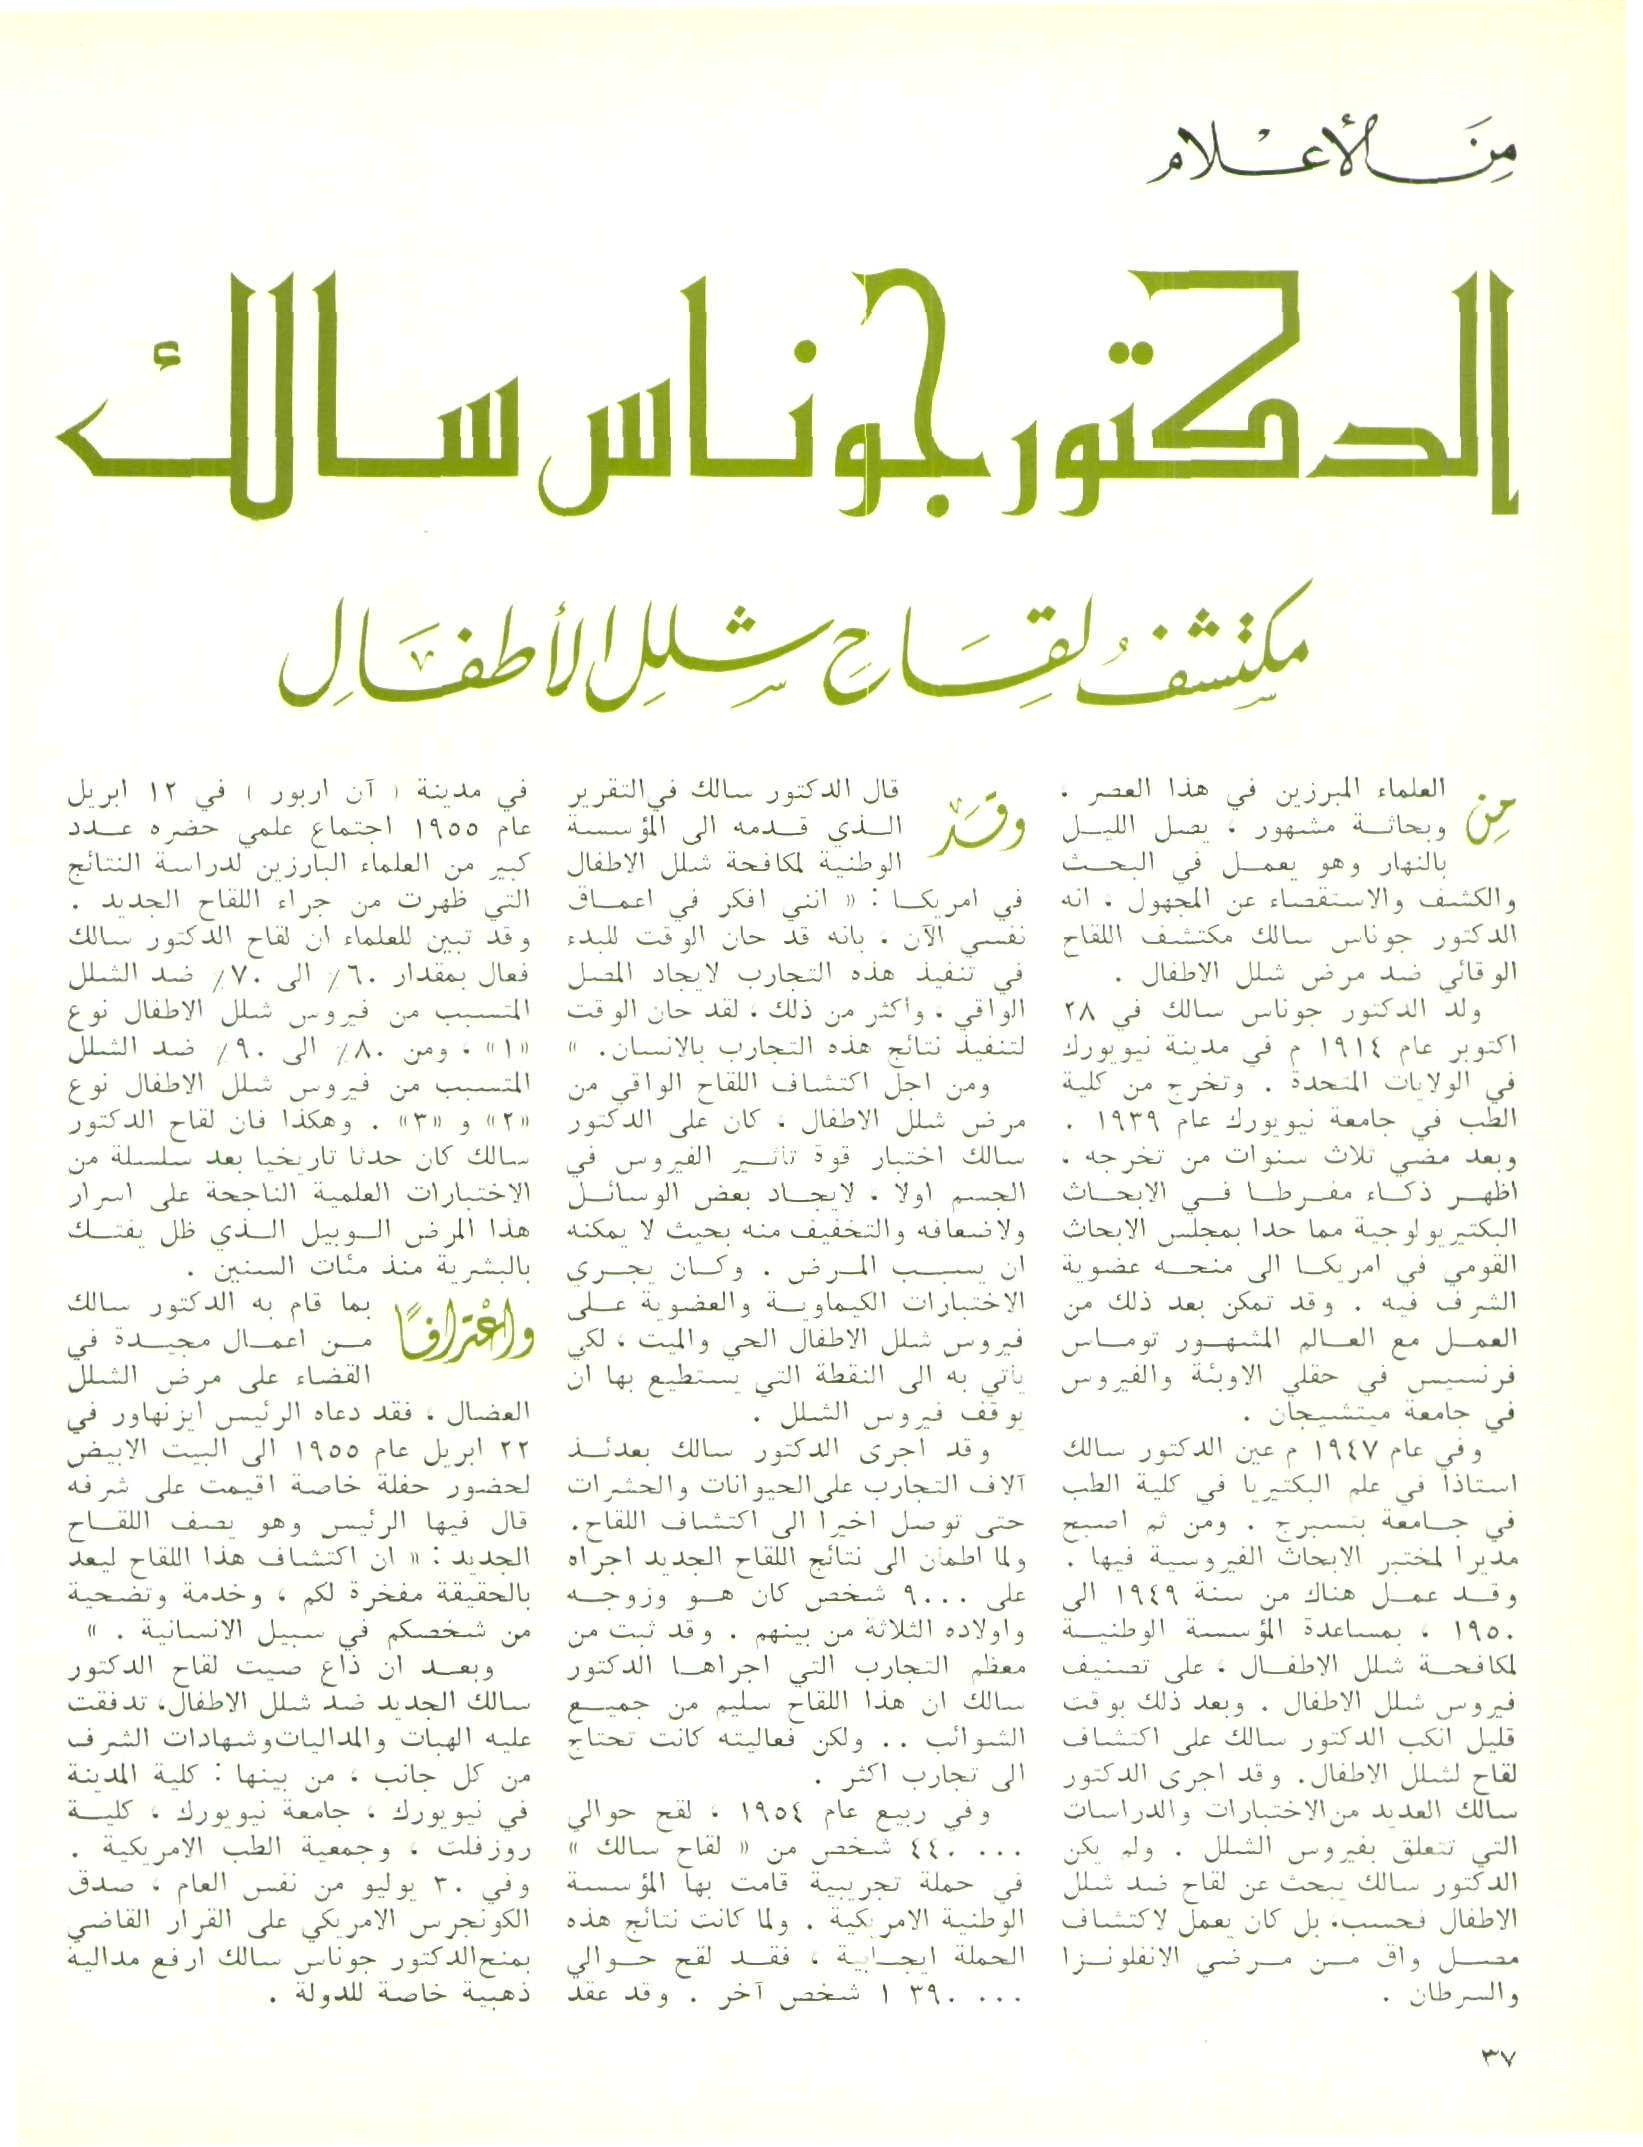 من الأعلام
الدكتور جوناس سالك
مكتشف لقاح شلل الأطفال
من العلماء المبرزين في هذا العصر .
وبحاثة مشهور ، يصل الليل
بالنهار وهو يعمل في البحث
والكشف والاستقصاء عن المجهول ، انه
الدكتور جوناس سالك مكتشف اللقاح
الوقائي ضد مرض شلل الاطفال .
ولد الدكتور جوناس سالك في ٢٨
اكتوبر عام ١٩١٤ م في مدينة نيويورك
في الولايات المتحدة . وتخرج من كلية
الطب في جامعة نيويورك عام ١٩٣٩ .
وبعد مضي ثلاث سنوات من تخرجه ،
اظهر ذكاء مفرطا في الابحاث
البكتيريولوجية مما حدا بمجلس الابحاث
القومي في امريكا الى منحه عضوية
الشرف فيه . وقد تمكن بعد ذلك من
العمل مع العالم المشهور توماس
فرنسيس في حقلي الاوبئة والفيروس
في جامعة ميتشيجان .
وفي عام ١٩٤٧ م عين الدكتور سالك
استاذا في علم البكتيريا في كلية الطب
في جامعة بتسبرج . ومن ثم اصبح
مديرا لمختبر الابحاث الفيروسية فيها .
وقد عمل هناك من سنة ١٩٤٩ الى
١٩٥٠ ، بمساعدة المؤسسة الوطنية
لمكافحة شلل الاطفال ، على تصنيف
فيروس شلل الاطفال . وبعد ذلك بوقت
قليل انكب الدكتور سالك على اكتشاف
لقاح لشلل الاطفال. وقد اجرى الدكتور
سالك العديد من الاختبارات والدراسات
التي تتعلق بفيروس الشلل . ولم يكن
الدكتور سالك يبحث عن لقاح ضد شلل
الاطفال فحسب، بل كان يعمل لاكتشاف
مصل واق من مرضي الانفلونزا
والسرطان .
وقد قال الدكتور سالك في التقرير
الذي قدمه الى المؤسسة
الوطنية لمكافحة شلل الاطفال
في امريكا : « انني افكر في اعماق
نفسي الآن ، بانه قد حان الوقت للبدء
في تنفيذ هذه التجارب لايجاد المصل
الواقي ، واكثر من ذلك ، لقد حان الوقت
لتنفيذ نتائج هذه التجارب بالانسان. »
ومن اجل اكتشاف اللقاح الواقي من
مرض شلل الاطفال ، كان على الدكتور
سالك اختبار قوة تاثير الفيروس في
الجسم اولا ، لايجاد بعض الوسائل
ولاضعافه والتخفيف منه بحيث لا يمكنه
ان يسبب المرض . وكان يجري
الاختبارات الكيماوية والعضوية على
فيروس شلل الاطفال الحي والميت ، لكي
ياتي به الى النقطة التي يستطيع بها ان
يوقف فيروس الشلل .
وقد اجرى الدكتور سالك بعدئذ
آلاف التجارب على الحيوانات والحشرات
حتى توصل اخيرا الى اكتشاف اللقاح.
ولما اطمان الى نتائج اللقاح الجديد اجراه
على ٩٠٠٠ شخص كان هو وزوجه
واولاده الثلاثة من بينهم . وقد ثبت من
معظم التجارب التي اجراها الدكتور
سالك ان هذا اللقاح سليم من جميع
الشوائب .. ولكن فعاليته كانت تحتاج
الى تجارب اكثر .
وفي ربيع عام ١٩٥٤ ، لقح حوالي
٤٤٠٠٠٠ شخص من « لقاح سالك »
في حملة تجريبية قامت بها المؤسسة
الوطنية الامريكية . ولما كانت نتائج هذه
الحملة ايجابية ، فقد لقح حوالي
١٣٩٠٠٠٠ شخص آخر . وقد عقد
في مدينة ( آن اربور ) في ١٢ ابريل
عام ١٩٥٥ اجتماع علمي حضره عدد
كبير من العلماء البارزين لدراسة النتائج
التي ظهرت من جراء اللقاح الجديد .
وقد تبين للعلماء ان لقاح الدكتور سالك
فعال بمقدار ٦٠٪ الى ٧٠٪ ضد الشلل
المتسبب من فيروس شلل الاطفال نوع
«١» ، ومن ٨٠٪ الى ٩٠٪ ضد الشلل
المتسبب من فيروس شلل الاطفال نوع
«٢» و «٣» . وهكذا فان لقاح الدكتور
سالك كان حدثا تاريخيا بعد سلسلة من
الاختبارات العلمية الناجحة على اسرار
هذا المرض الوبيل الذي ظل يفتك
بالبشرية منذ مئات السنين .
واعترافًا بما قام به الدكتور سالك
من اعمال مجيدة في
القضاء على مرض الشلل
العضال ، فقد دعاه الرئيس ايزنهاور في
٢٢ ابريل عام ١٩٥٥ الى البيت الابيض
لحضور حفلة خاصة اقيمت على شرفه
قال فيها الرئيس وهو يصف اللقاح
الجديد : « ان اكتشاف هذا اللقاح ليعد
بالحقيقة مفخرة لكم ، وخدمة وتضحية
من شخصكم في سبيل الانسانية . »
وبعد ان ذاع صيت لقاح الدكتور
سالك الجديد ضد شلل الاطفال، تدفقت
عليه الهبات والمداليات وشهادات الشرف
من كل جانب ، من بينها : كلية المدينة
في نيويورك ، جامعة نيويورك ، كلية
روزفلت ، وجمعية الطب الامريكية .
وفي ٣٠ يوليو من نفس العام ، صدق
الكونجرس الامريكي على القرار القاضي
بمنح الدكتور جوناس سالك ارفع مدالية
ذهبية خاصة للدولة .
٣٧